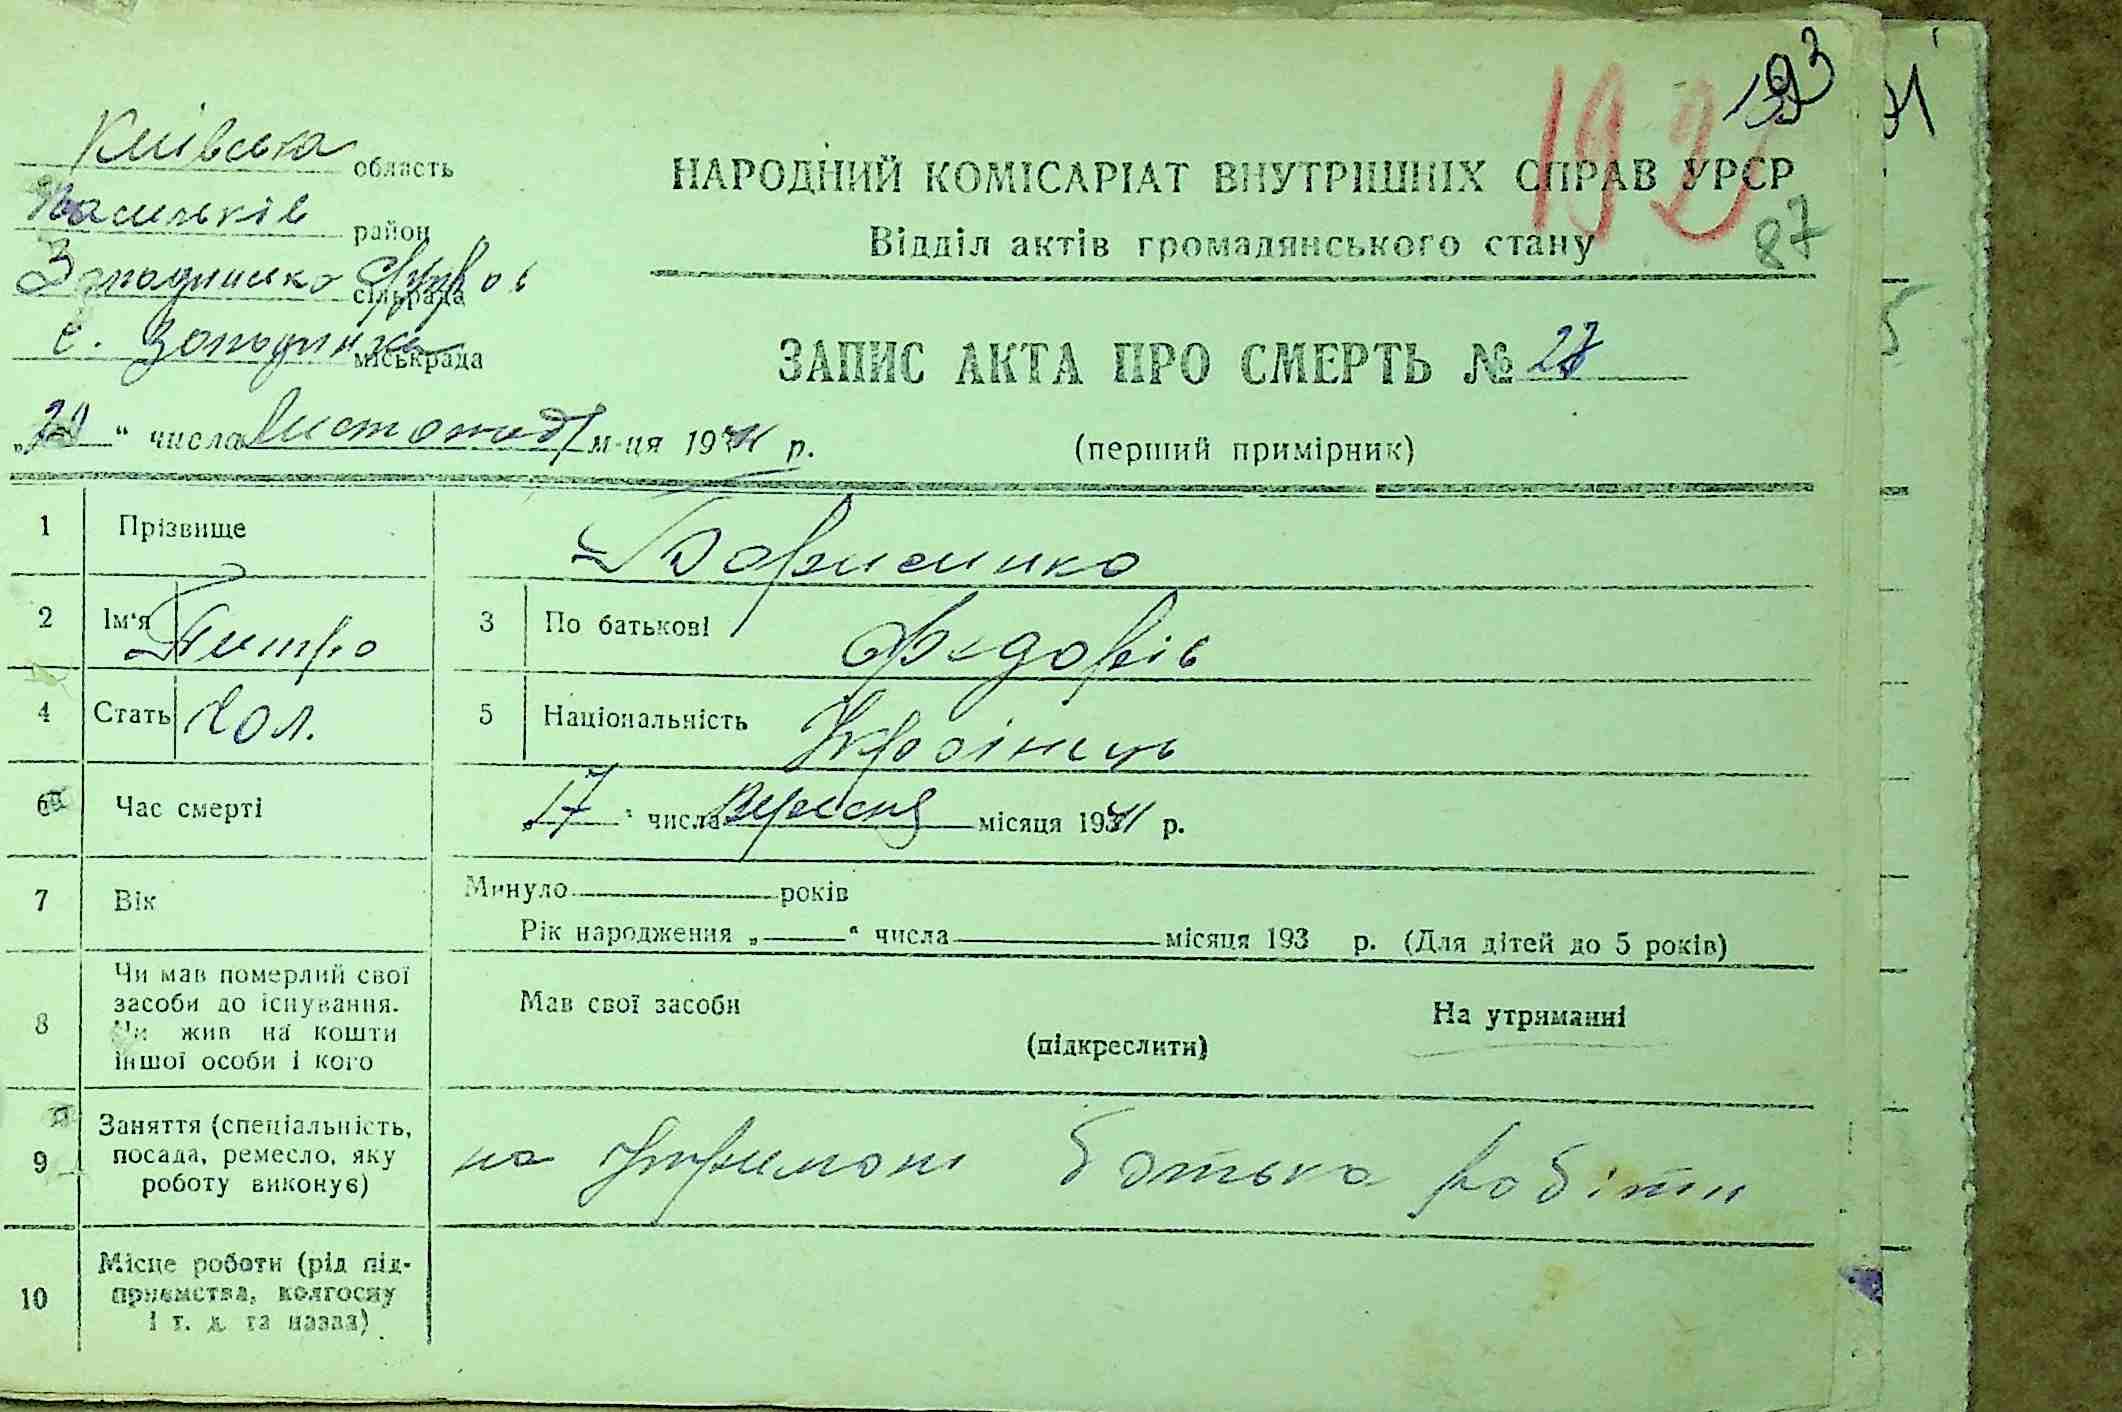 193
192
87
Київська область
Васильків район
сільрада
с. міськрада
НАРОДНИЙ КОМІСАРІАТ ВНУТРІШНІХ СПРАВ УРСР
Відділ актів громадянського стану
ЗАПИС АКТА ПРО СМЕРТЬ №
„ “ числа листопад м-ця 1941 р.
(перший примірник)
1 Прізвище Борисинко
2 Ім'я Питро 3 По батькові Федорів
4 Стать Чол. 5 Національність Українець
6 Час смерті „17“ числа Вересня місяця 1941 р.
7 Вік Минуло років
Рік народження „ “ числа місяця 193 р. (Для дітей до 5 років)
8 Чи мав померлий свої
засоби до існування.
Чи жив на кошти
іншої особи і кого
Мав свої засоби На утряманні
(підкреслити)
9 Заняття (спеціальність,
посада, ремесло, яку
роботу виконує)
на утримані батька
10 Місце роботи (рід під-
приємства, колгоспу
і т. д. та назва)